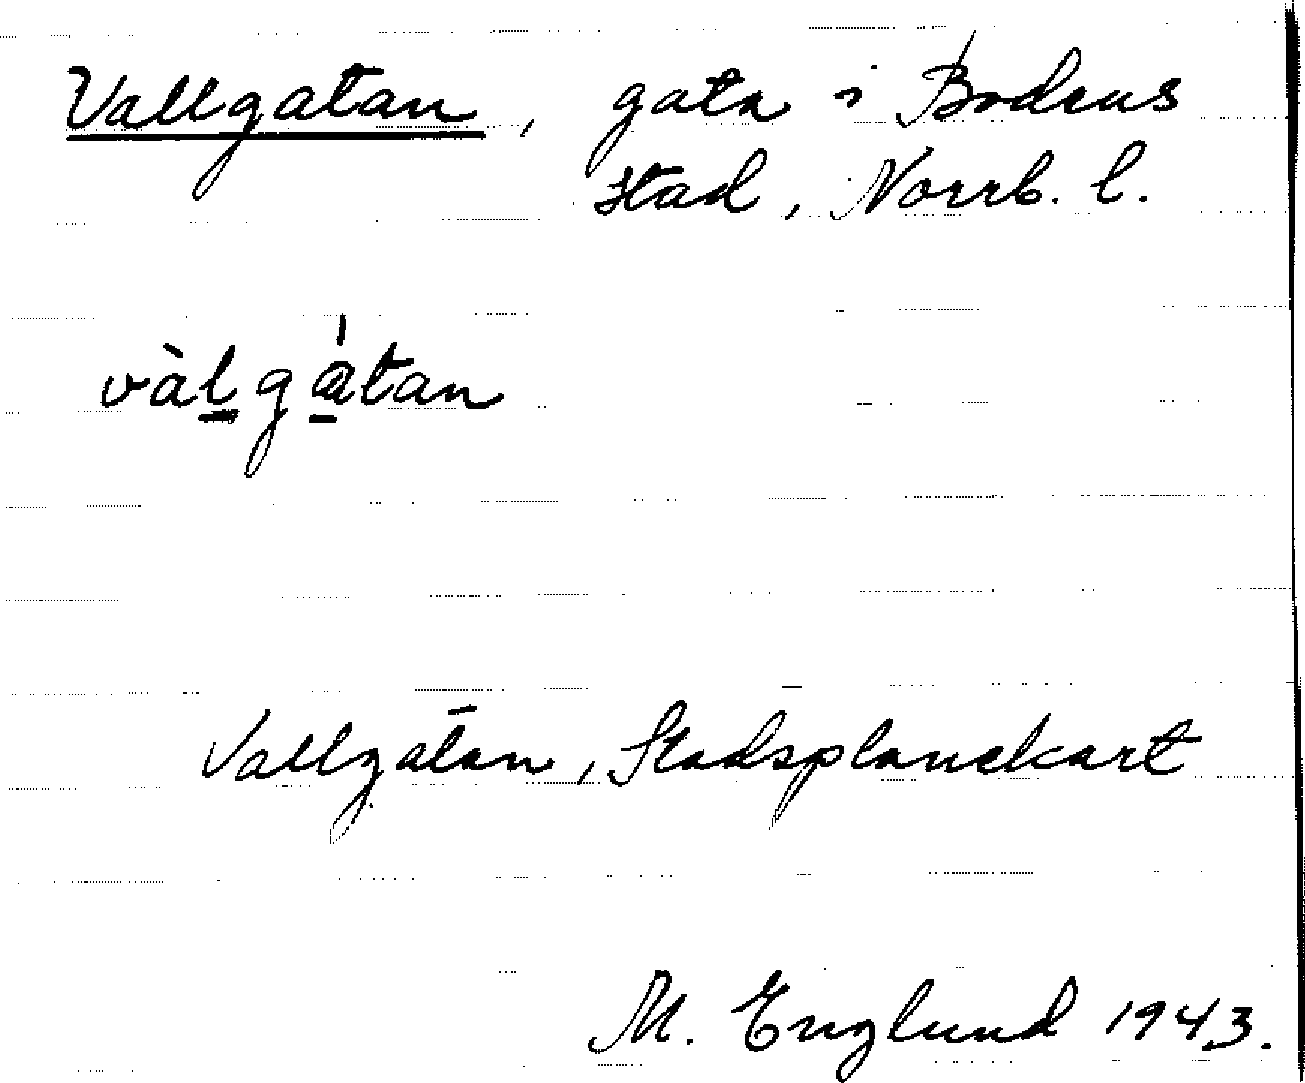 Vallgatan, gata i Bodens
stad, Norrb. l.
vàl̲gá̲tan
Vallgatan, Stadsplanekart
M. Englund 1943.